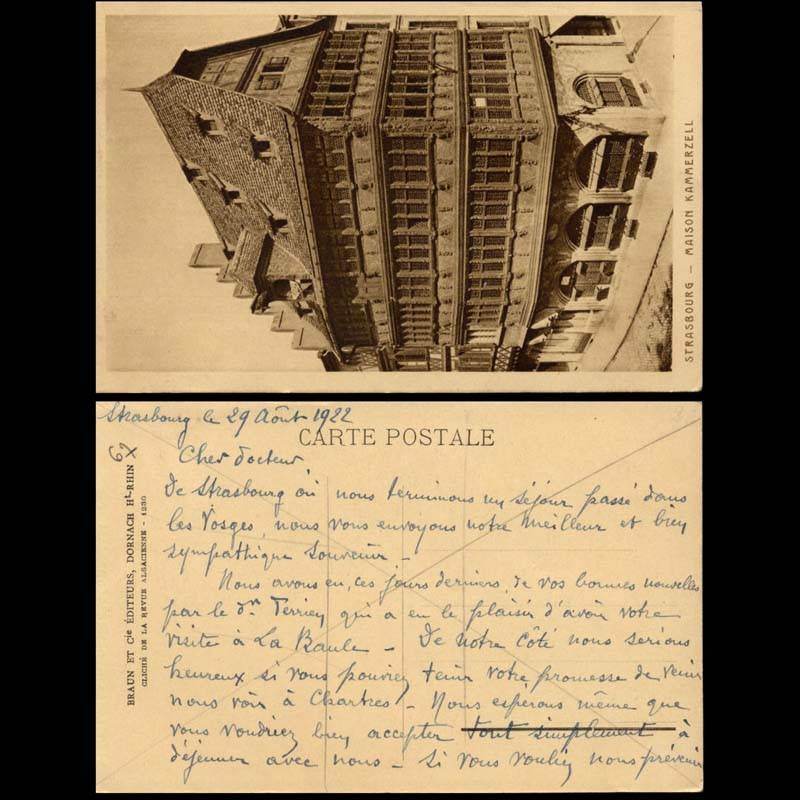 STRASBOURG – MAISON KAMMERZELL
Strasbourg le 29 Août 1922
CARTE POSTALE
62
BRAUN ET Cie ÉDITEURS, DORNACH Ht-RHIN
CLICHÉ DE LA REVUE ALSACIENNE - 1230
Cher docteur
De Strasbourg où nous terminons un séjour passé dans
les Vosges, nous vous envoyons notre meilleur et bien
sympathique souvenir –
Nous avons eu, ces jours derniers, de vos bonnes nouvelles
par le dr Terrien qui a eu le plaisir d'avoir votre
visite à La Baule – De notre côté nous serions
heureux si vous pouviez tenir votre promesse de venir
nous voir à Chartres – Nous espérons même que
vous voudriez bien accepter tout simplement à
déjeuner avec nous – Si vous vouliez nous prévenir